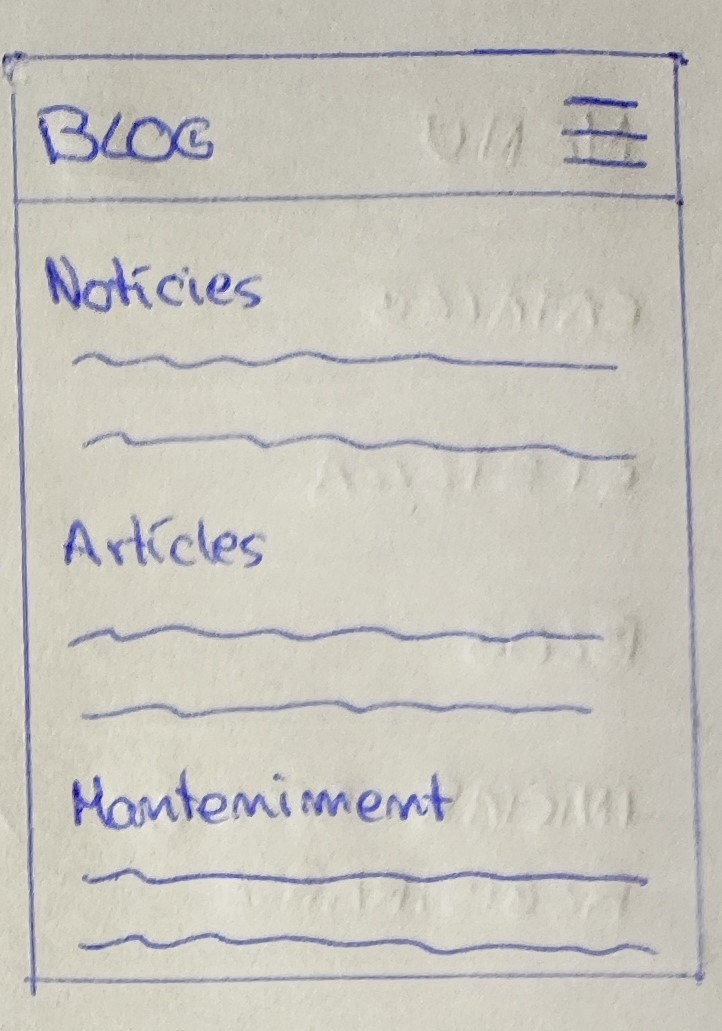 BLOG
Notícies
Artícles
Manteniment